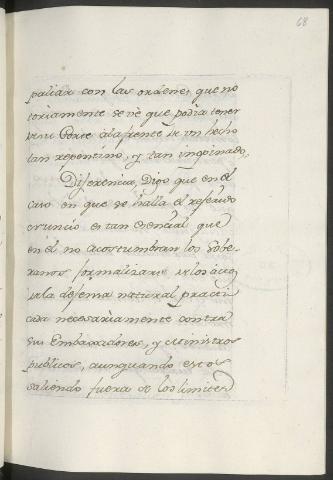 68
paliar con las ordenes, que no
toriamente se vè que podia tener
una Corte à la frente de un hecho
tan repentino, y tan inopinado,
Diferencia, Digo que en el
caso en que se halla el referido
Nuncio es tan esencial que
en èl no acostumbran los Sobe-
ranos formalizarse de los actos
de la defensa natural practi
cada necesariamente contra
sus Embaxadores, y Ministros
publicos, aunquando estos
saliendo fuera de los limites